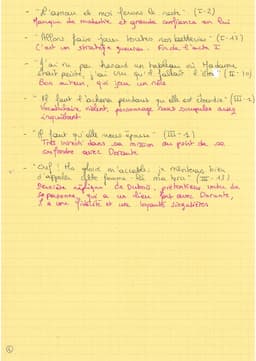 - "L'amour et moi ferons le reste" (I-2)
Manque de modestie et grande confiance en lui
- "Allons faire jouer toutes nos batteries" (I-17)
C'est un stratège guerrier. Fin de l'acte I
- "J'ai vu par hasard un tableau où Madame
était peinte, j'ai cru qu'il fallait l'ôter" (II-10)
Bon acteur, qui joue un rôle
- "Il faut l'achever pendant qu'elle est étourdie" (III-1)
Vocabulaire violent, personnage assez
inquiétant
- "Il faut qu'elle nous épouse" (III-1)
Très investi dans sa mission au point de se
confondre avec Dorante
- "Ouf ! Ma gloire m'accable : je mériterais bien
d'appeler cette femme-là ma bru" (III-13)
Dernière réplique de Dubois, prétention outre de
sa personne, qui a un lien fort avec Dorante,
il a une fidélité et une loyauté singulières